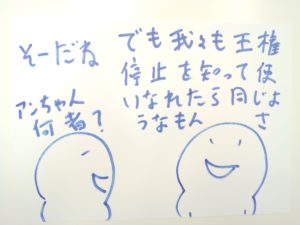 そーだね
アンちゃん
何者?
でも我々も王権
停止を知って使
いなれたら同じよ
うなもんさ